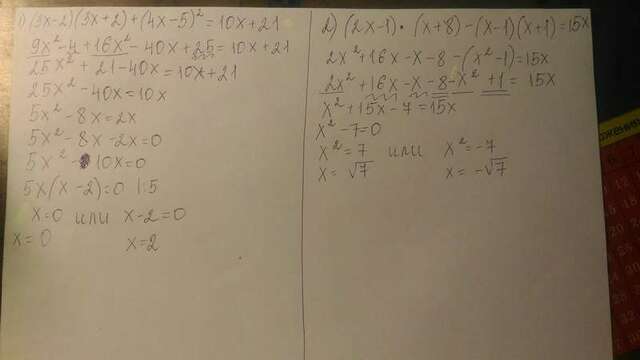 1) (3x-2)(3x+2)+(4x-5)²=10x+21
9x²-4+16x²-40x+25=10x+21
25x²+21-40x=10x+21
25x²-40x=10x
5x²-8x=2x
5x²-8x-2x=0
5x²-10x=0
5x(x-2)=0 |:5
x=0 или x-2=0
x=0 x=2
2) (2x-1)·(x+8)-(x-1)(x+1)=15x
2x²+16x-x-8-(x²-1)=15x
2x²+16x-x-8-x²+1=15x
x²+15x-7=15x
x²-7=0
x²=7 или x²=-7
x=√7 x=-√7